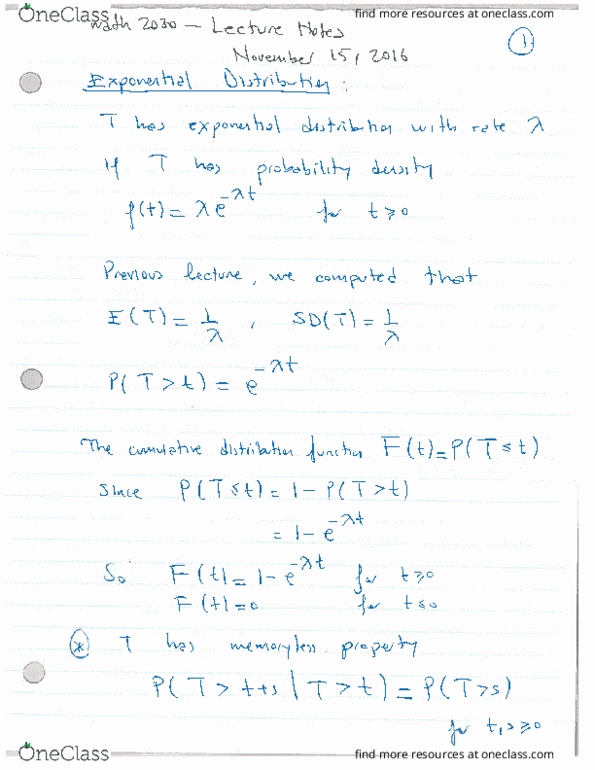 OneClass
find more resources at oneclass.com
Math 2030 — Lecture Notes
November 15, 2016
1
Exponential Distribution:
T has exponential distribution with rate λ
if T has probability density
f(t) = λe^{-λt} for t ≥ 0
Previous lecture, we computed that
E(T) = 1/λ , SD(T) = 1/λ
P(T > t) = e^{-λt}
The cumulative distribution function F(t) = P(T ≤ t)
Since P(T ≤ t) = 1 - P(T > t)
= 1 - e^{-λt}
So F(t) = 1 - e^{-λt} for t ≥ 0
F(t) = 0 for t ≤ 0
* T has memoryless property
P(T > t+s | T > t) = P(T > s)
for t, s ≥ 0
OneClass
find more resources at oneclass.com